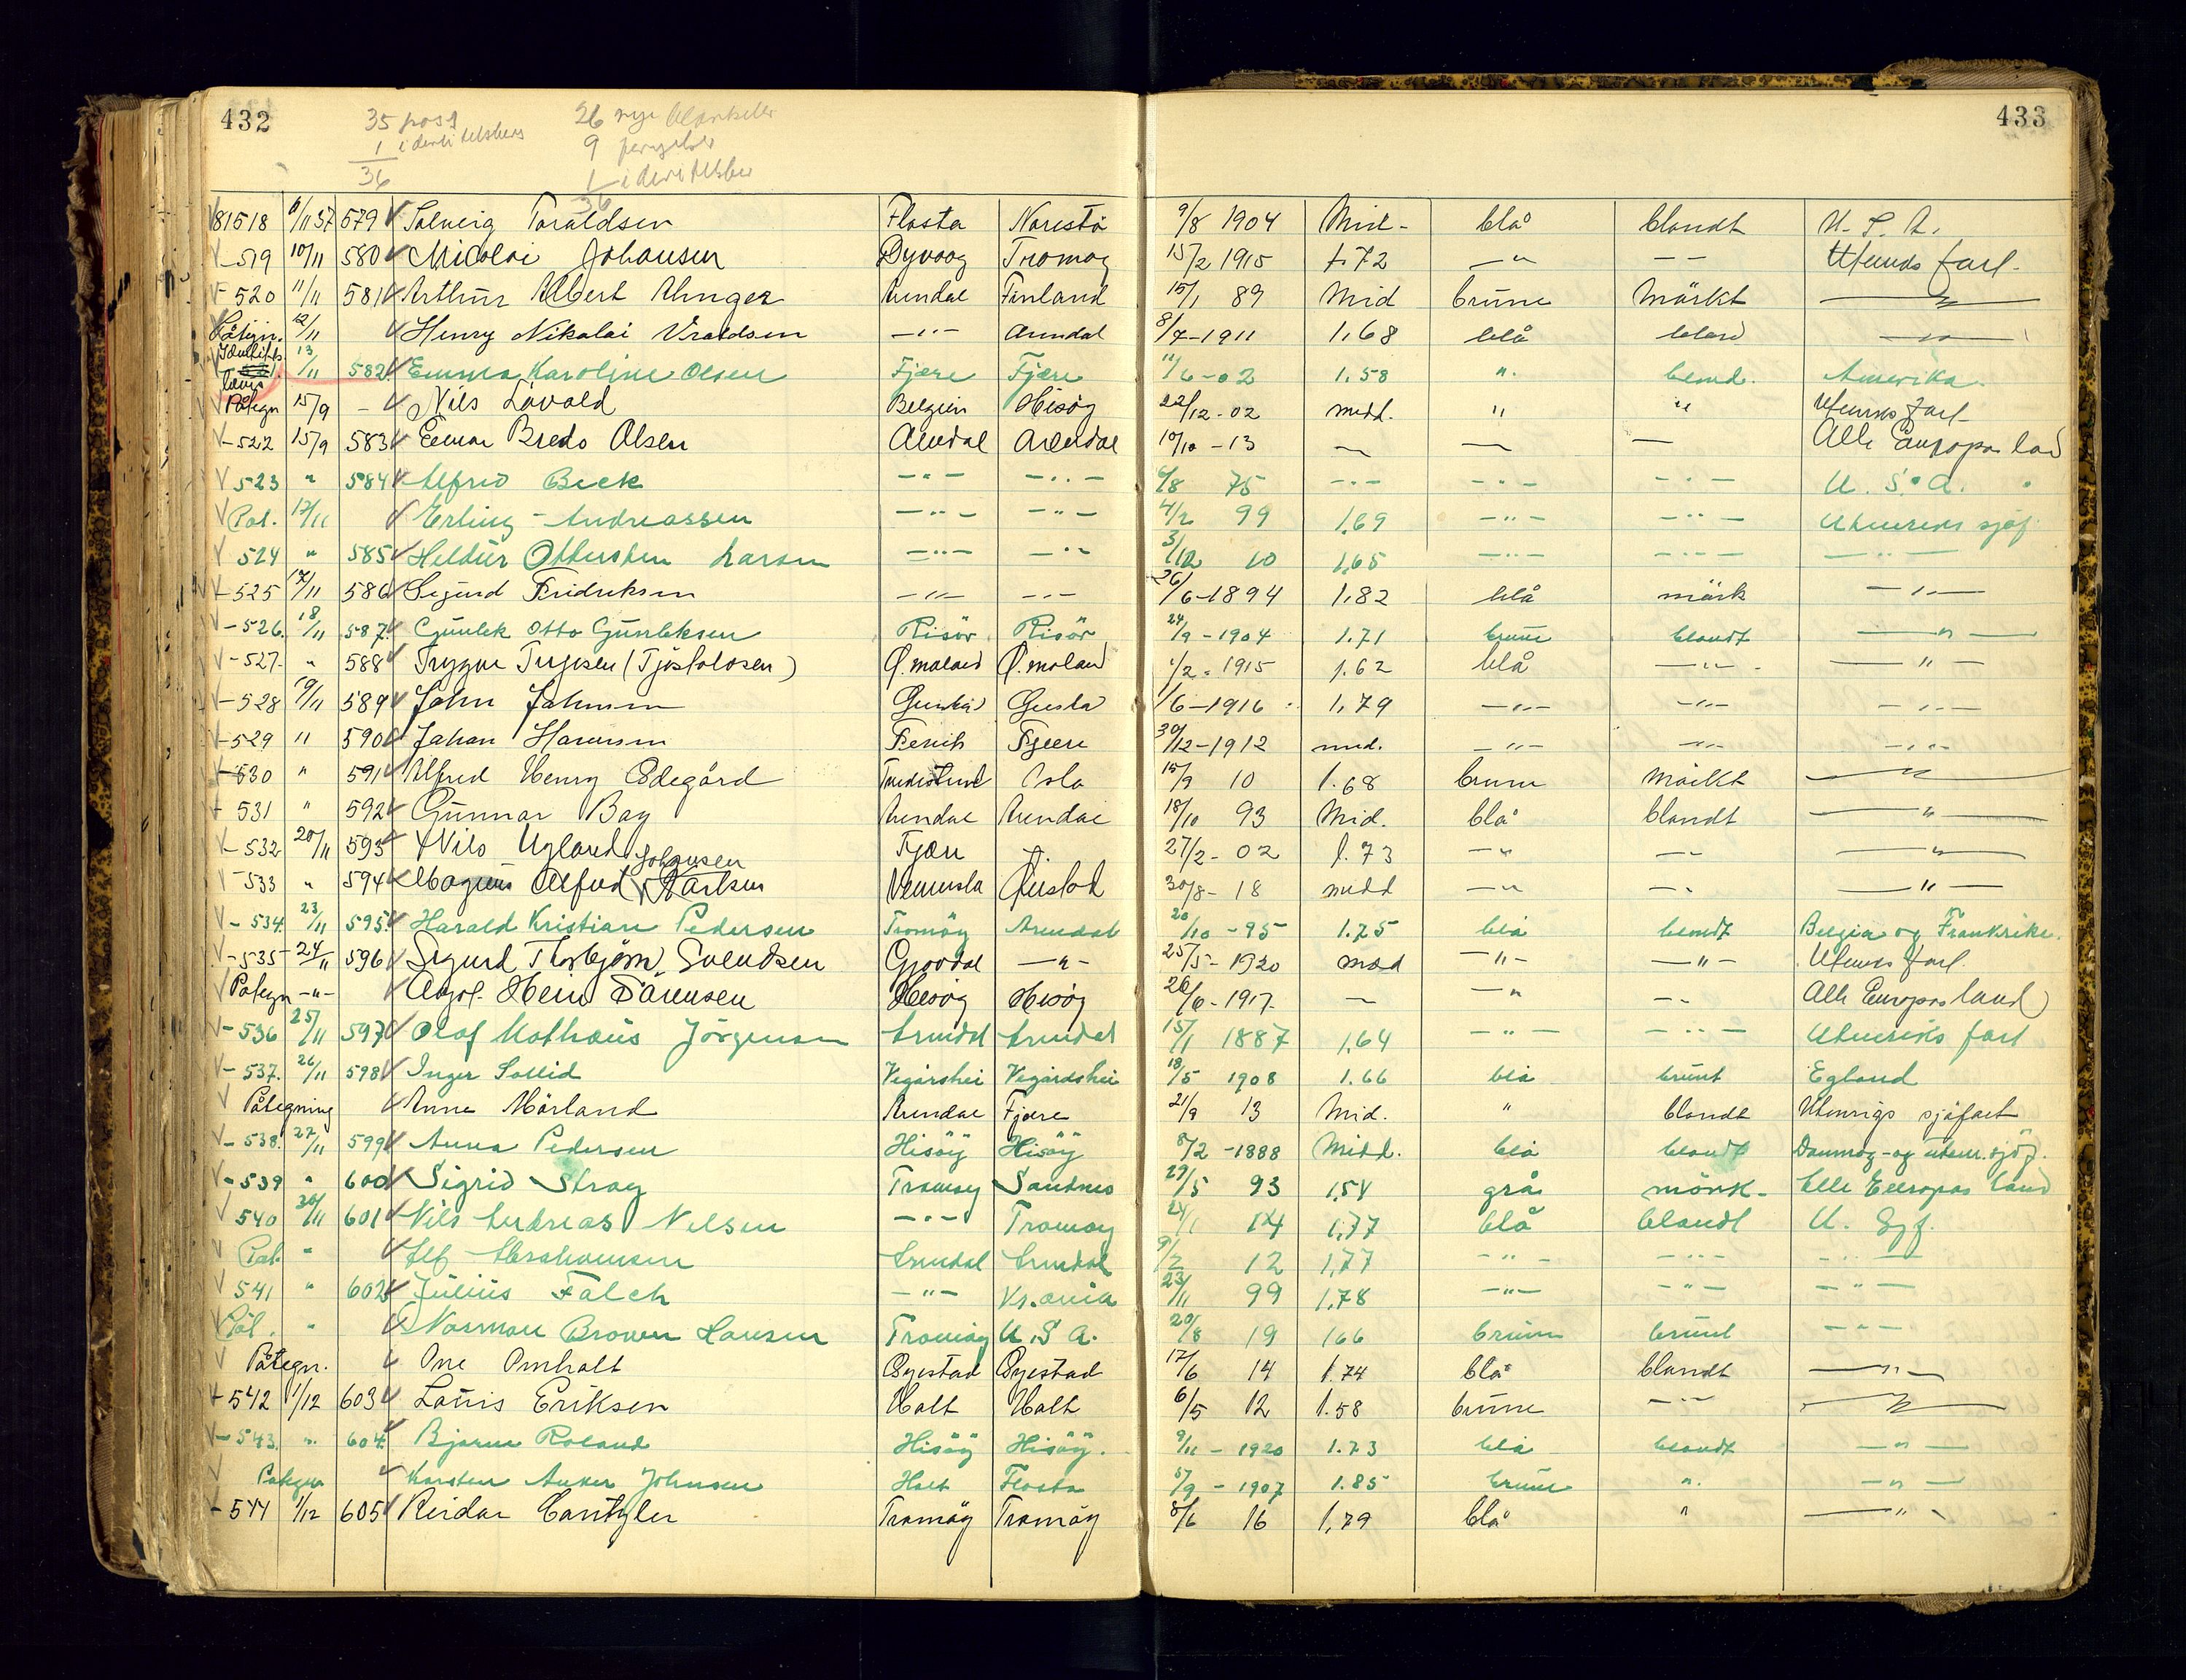 432
433
35 pass
1 identitetsbevis
36
26 nye blanketter
9 
1 identitetsbe
36
81518 6/11 37 579 Solveig Toraldsen Flosta Narestö 9/8 1904 Mid- blå blondt U. S. A.
-519 10/11 580 Nicolai Johansen Dyvaag Tromøy 15/2 1915 1.72 —"— — — Utenriks fart.
-520 11/11 581 Arthur Albert Unger Arendal Finland 15/1 89 Mid brune Mörkt —"—
Påtegn. 12/11 Henry Nikolai Vraldsen —"— Arendal 8/7-1911 1,68 blå blond —"—
Identitets bevis 13/11 582 Emma Karoline Olsen Fjære Fjære 11/6-02 1,58 ". blond. Amerika.
Påtegn 15/9 — Nils Lövold Belgien Hisöy 22/12-02 midd. " " Utenriks fart
-522 15/9 583 Einar Bredo Olsen Arendal Arendal 10/10-13 — — — Alle Europas land
523 " 584 Alfred Beck —"— —"— 6/8 75 —"— —"— —"— U. S. A.
Pat. 17/11 Erling Andreassen —"— —"— 4/2 99 1,69 —"— —"— Utenriks sjøf
524 " 585 Heldur Ottersten Larsen —"— —"— 3/12 10 1,65 —"— —"— —"—
-525 17/11 586 Sigurd Fredriksen —"— —"— 26/6-1894 1,82 blå mörk —"—
-526. 18/11 587. Gunlek Otto Gunleksen Risör Risör 24/9-1904 1.71 brune blondt —"—
-527- " 588 Trygve Terjesen (Tjöstolvsen) Ø.moland Ø.moland 1/2-1915 1.62 blå —"— —"—
-528 19/11 589 John Johnsen 1/6-1916 1,79 —"— —"— —"—
-529 " 590 Johan Hansen Fjære 30/12-1912 mid. —"— —"— —"—
-530 " 591 Alfred Henry Ødegård Oslo 15/9 10 1.68 brune Mörkt —"—
531 " 592 Gunnar Bay Arendal Arendal 18/10 93 Mid. blå blondt —"—
-532 20/11 593 Nils Ugland Fjære —"— 27/2-02 1.73 —"— —"— —"—
-533 " 594 Magnus Alfred Johansen Karlsen Vennesla Øiestad 30/8-18 midd —"— —"— —"—
-534 23/11 595. Harald Kristian Pedersen Tromöy Arendal 20/10-95 1.75 blå blondt Belgia og Frankrike.
-535 24/11 596 Sigurd Thorbjörn Svendsen Gjövdal —"— 25/5-1920 med —"— —"— Utenriks fart.
Påtegn —"— Hisöy Hisöy 26/6-1917. — —"— —"— Alle Europas land
-536 25/11 597 Olaf Mathæus Jörgensen Arendal Arendal 15/1 1887 1,64 —"— —"— Utenriks fart
-537. 26/11 598 Inger Sollid Vegårshei Vegårdshei 18/5 1908 1.66 blå brunt England
Påtegning Anne Mörland Arendal Fjære 21/9 13 Mid. " blondt Utenrigs sjöfart
-538. 27/11 599 Anna Pedersen Hisöy Hisöy 8/2-1888 Midd. blå blondt Danmag-og utenr. sjöf.
-539 " 600 Sigrid Stray Tromøy Sandnes 29/5 93 1,54 grå mörk- Alle Europas land
540 30/11 601 Nils Andreas Nilsen —"— Tromøy 24/1 14 1,77 blå blondt U. Sjf.
Pat. " Alf Abrahamsen Arendal Arendal 9/2 12 1,77 —"— —"— —"—
541 " 602 Julius Falch —"— Kr.ania 23/11 99 1,78 —"— —"— —"—
Påt. " Norman Brown Hansen Tromöy U.S.A. 20/8 19 166 brune brunt —"—
Påtegn. One Omholt Øyestad Øyestad 17/6 14 1.74 blå blondt —"—
-542 1/12 603 Louis Eriksen Holt Holt 6/5 12 1.58 brune —"— —"—
-543. " 604. Bjarne Roland Hisöy Hisöy. 9/11-1920 1.73 blå blondt —"—
Påtegn Karsten Anker Johnsen Holt Flosta 5/9-1907 1.85 brune ". —"—
-544 1/12 605 Reidar Tromöy Tromöy 8/6 16 1,79 blå " —"—